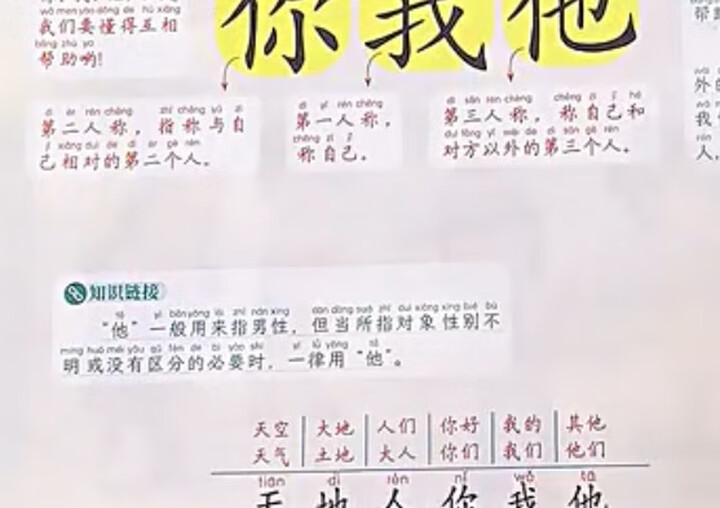 我们要懂得互相
帮助哟!
你 我 他
dì èr rén chēng zhǐ chēng yǔ zì
第二人称，指称与自
jǐ xiāng duì de dì èr gè rén
己相对的第二个人。
dì yī rén chēng
第一人称，
chēng zì jǐ
称自己。
dì sān rén chēng chēng zì jǐ hé
第三人称，称自己和
duì fāng yǐ wài de dì sān gè rén
对方以外的第三个人。
外的
我
人，
知识链接
tā yì bān yòng lái zhǐ nán xìng dàn dāng suǒ zhǐ duì xiàng xìng bié bù
“他”一般用来指男性，但当所指对象性别不
míng huò méi yǒu qū fēn de bì yào shí yí lǜ yòng tā
明或没有区分的必要时，一律用“他”。
天空 大地 人们 你好 我的 其他
天气 土地 大人 你们 我们 他们
tiān dì rén nǐ wǒ tā
天 地 人 你 我 他